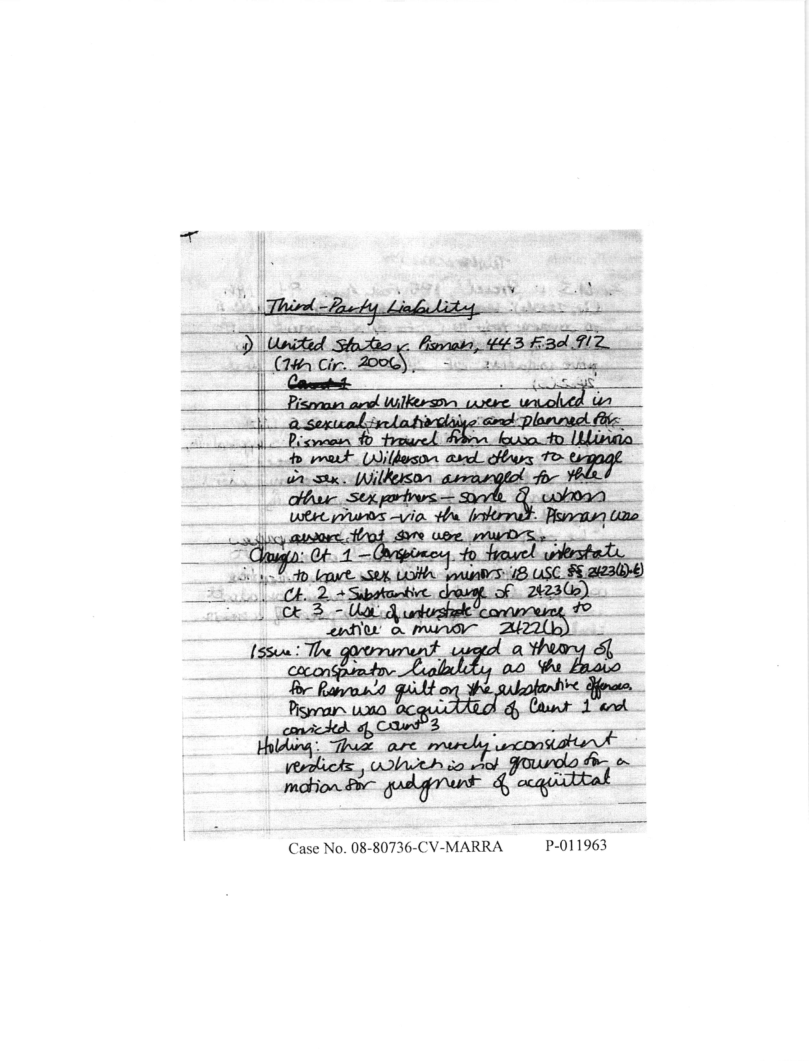 Third-Party Liability
1) United States v. Pisman, 443 F.3d 912
(7th Cir. 2006).
Count 1
Pisman and Wilkerson were involved in
a sexual relationships and planned for
Pisman to travel from Iowa to Illinois
to meet Wilkerson and others to engage
in sex. Wilkerson arranged for the
other sex partners – some of whom
were minors – via the Internet. Pisman was
aware that some were minors.
Charges: Ct 1 – Conspiracy to travel interstate
to have sex with minors 18 USC §§ 2423(b)-(e)
Ct. 2 – Substantive charge of 2423(b)
Ct 3 – Use of interstate commerce to
entice a minor 2422(b)
Issue: The government urged a theory of
coconspirator liability as the basis
for Pisman's guilt on the substantive offenses.
Pisman was acquitted of Count 1 and
convicted of Count 3
Holding: These are merely inconsistent
verdicts, which is not grounds for a
motion for judgment of acquittal
Case No. 08-80736-CV-MARRA P-011963